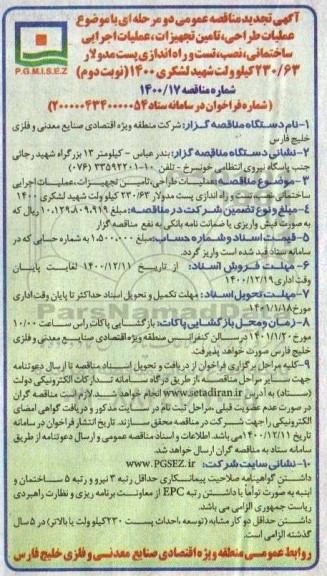 آگهی تجدید مناقصه عمومی دو مرحله ای با موضوع
عملیات طراحی، تامین تجهیزات، عملیات اجرایی
ساختمانی، نصب، تست و راه اندازی پست مدولار
۲۳۰/۶۳ کیلو ولت شهید لشکری ۱۴۰۰ (نوبت دوم)
P.G.M.I.S.E.Z
شماره مناقصه ۱۴۰۰/۱۷
(شماره فراخوان در سامانه ستاد ۲۰۰۰۰۰۴۳۴۰۰۰۰۵۴)
۱- نام دستگاه مناقصه گزار: شرکت منطقه ویژه اقتصادی صنایع معدنی و فلزی
خلیج فارس
۲- نشانی دستگاه مناقصه گزار: بندر عباس - کیلومتر ۱۳ بزرگراه شهید رجائی
جنب پاسگاه نیروی انتظامی خونسرخ - تلفن ۱۰-۳۳۵۹۲۲۰۱ (۰۷۶)
۳- موضوع مناقصه: عملیات طراحی، تامین تجهیزات، عملیات اجرایی
ساختمانی، نصب، تست و راه اندازی پست مدولار ۲۳۰/۶۳ کیلو ولت شهید لشکری ۱۴۰۰
۴- مبلغ و نوع تضمین شرکت در مناقصه: مبلغ ۱۰،۱۲۹،۸۰۹،۹۱۹ ریال که
به صورت فیش واریزی یا ضمانت نامه بانکی به نفع مناقصه گزار
۵- قیمت اسناد و شماره حساب: مبلغ ۱،۵۰۰،۰۰۰ به شماره حسابی که در
سامانه ستاد قید شده است واریز گردد.
۶- مهلت فروش اسناد: از تاریخ ۱۴۰۰/۱۲/۱۱ لغایت پایان
وقت اداری ۱۴۰۰/۱۲/۱۹
۷- مهلت تحویل اسناد: مهلت تکمیل و تحویل اسناد حداکثر تا پایان وقت اداری
مورخ ۱۴۰۱/۱/۱۸
۸- زمان و محل بازگشایی پاکات: بازگشایی پاکات راس ساعت ۱۰/۰۰
مورخ ۱۴۰۱/۱/۲۰ در سالن کنفرانس منطقه ویژه اقتصادی صنایع معدنی و فلزی
خلیج فارس صورت خواهد پذیرفت.
۹- کلیه مراحل برگزاری فراخوان از دریافت و تحویل اسناد مناقصه تا ارسال دعوتنامه
جهت سایر مراحل مناقصه، از طریق درگاه سامانه تدارکات الکترونیکی دولت
(ستاد) به آدرس www.setadiran.ir انجام خواهد شد. لازم است مناقصه گران
در صورت عدم عضویت قبلی، مراحل ثبت نام در سایت مذکور و دریافت گواهی امضای
الکترونیکی را جهت شرکت در مناقصه محقق سازند. تاریخ انتشار فراخوان در سامانه
تاریخ ۱۴۰۰/۱۲/۱۱ می باشد. اطلاعات و اسناد مناقصه عمومی و ارسال دعوتنامه از طریق
سامانه ستاد به مناقصه گران ارسال خواهد شد.
۱۰- نشانی سایت شرکت: www.PGSEZ.ir
داشتن گواهینامه صلاحیت پیمانکاری حداقل رتبه ۳ نیرو و رتبه ۵ ساختمان و
ابنیه به صورت توأما یا داشتن رتبه EPC از معاونت برنامه ریزی و نظارت راهبردی
ریاست جمهوری الزامی می باشد.
داشتن حداقل دو کار مشابه (توسعه، احداث پست ۲۳۰ کیلو ولت یا بالاتر) در ۵ سال
گذشته الزامی است.
روابط عمومی منطقه ویژه اقتصادی صنایع معدنی و فلزی خلیج فارس